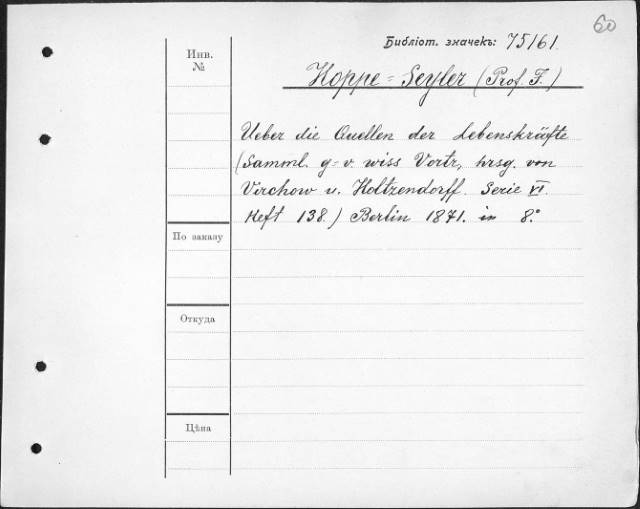 60
Библіот. значекъ: 75161
Инв. №
Hoppe=Seyler (Prof. F.)
Ueber die Quellen der Lebenskräfte
(Samml. g=v. wiss Vortr., hrsg. von
Virchow u. Holtzendorff. Serie VI.
Heft 138.) Berlin 1871. in 8.°
По заказу
Откуда
Цѣна